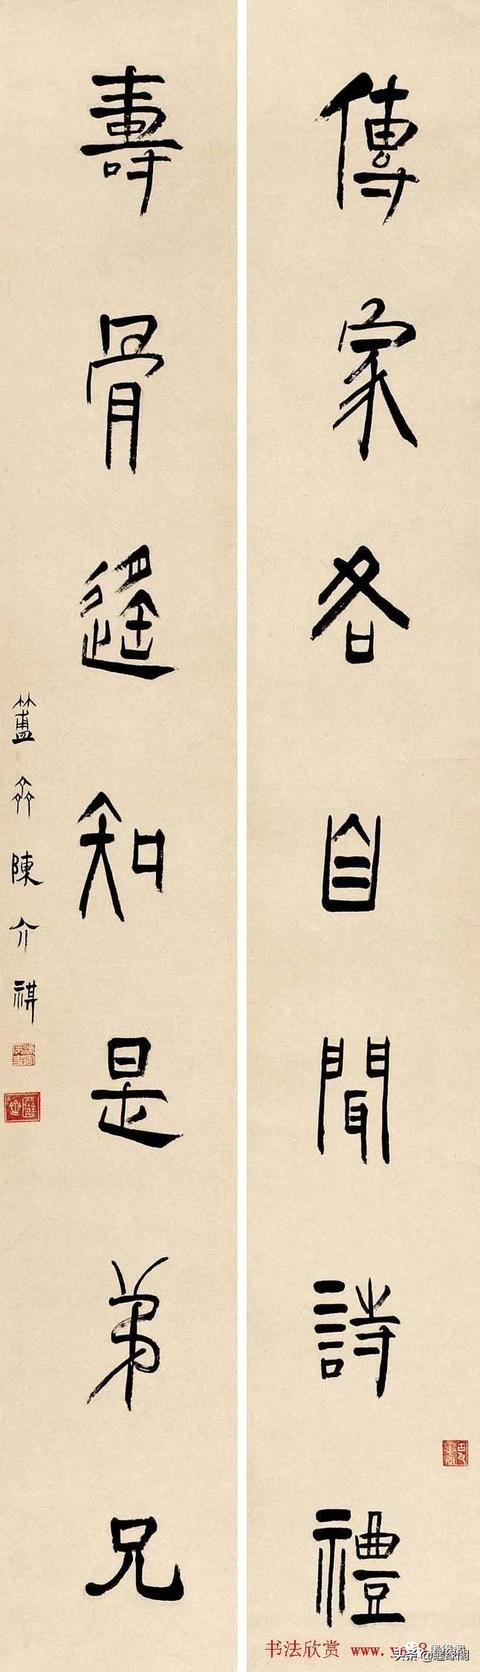 傳家各自聞詩禮
壽骨遥知是弟兄
簠齋陳介祺
书法欣赏 www.
头条@